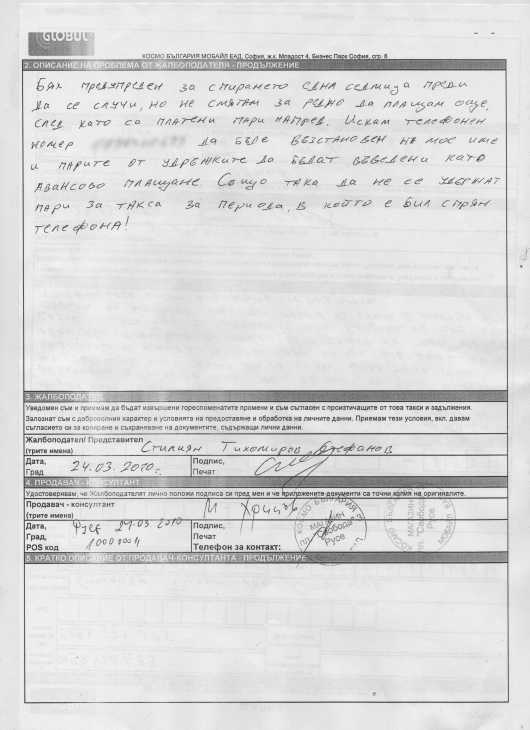 GLOBUL
КОСМО БЪЛГАРИЯ МОБАЙЛ ЕАД, София, ж.к. Младост 4, Бизнес Парк София, сгр. 6
2. ОПИСАНИЕ НА ПРОБЛЕМА ОТ ЖАЛБОПОДАТЕЛЯ - ПРОДЪЛЖЕНИЕ
Бях предупреден за спирането една седмица преди
да се случи, но не смятам за редно да плащам още,
след като са платени пари напред. Искам телефонен
номер да бъде възстановен на мое име
и парите от удръжките да бъдат въведени като
авансово плащане. Също така да не се удържат
пари за такса за периода, в който е бил спрян
телефона!
3. ЖАЛБОПОДАТЕЛ
Уведомен съм и приемам да бъдат извършени гореспоменатите промени и съм съгласен с произтичащите от това такси и задължения.
Запознат съм с доброволния характер и условията на предоставяне и обработка на личните данни. Приемам тези условия, вкл. давам
съгласието си за копиране и съхраняване на документите, съдържащи лични данни.
Жалбоподател/ Представител
(трите имена) Стилиян Тихомиров Стефанов
Дата, 24.03.2010г. Подпис,
Град Печат
4. ПРОДАВАЧ - КОНСУЛТАНТ
Удостоверявам, че Жалбоподателят лично положи подписа си пред мен и че приложените документи са точни копия на оригиналите.
Продавач - консултант
(трите имена) М
Дата, 24.03 2010 Подпис,
Град, Печат
POS код Телефон за контакт:
КОСМО БЪЛГАРИЯ
МАГАЗИН
пл. Свобода
Русе
5. КРАТКО ОПИСАНИЕ ОТ ПРОДАВАЧ-КОНСУЛТАНТА - ПРОДЪЛЖЕНИЕ